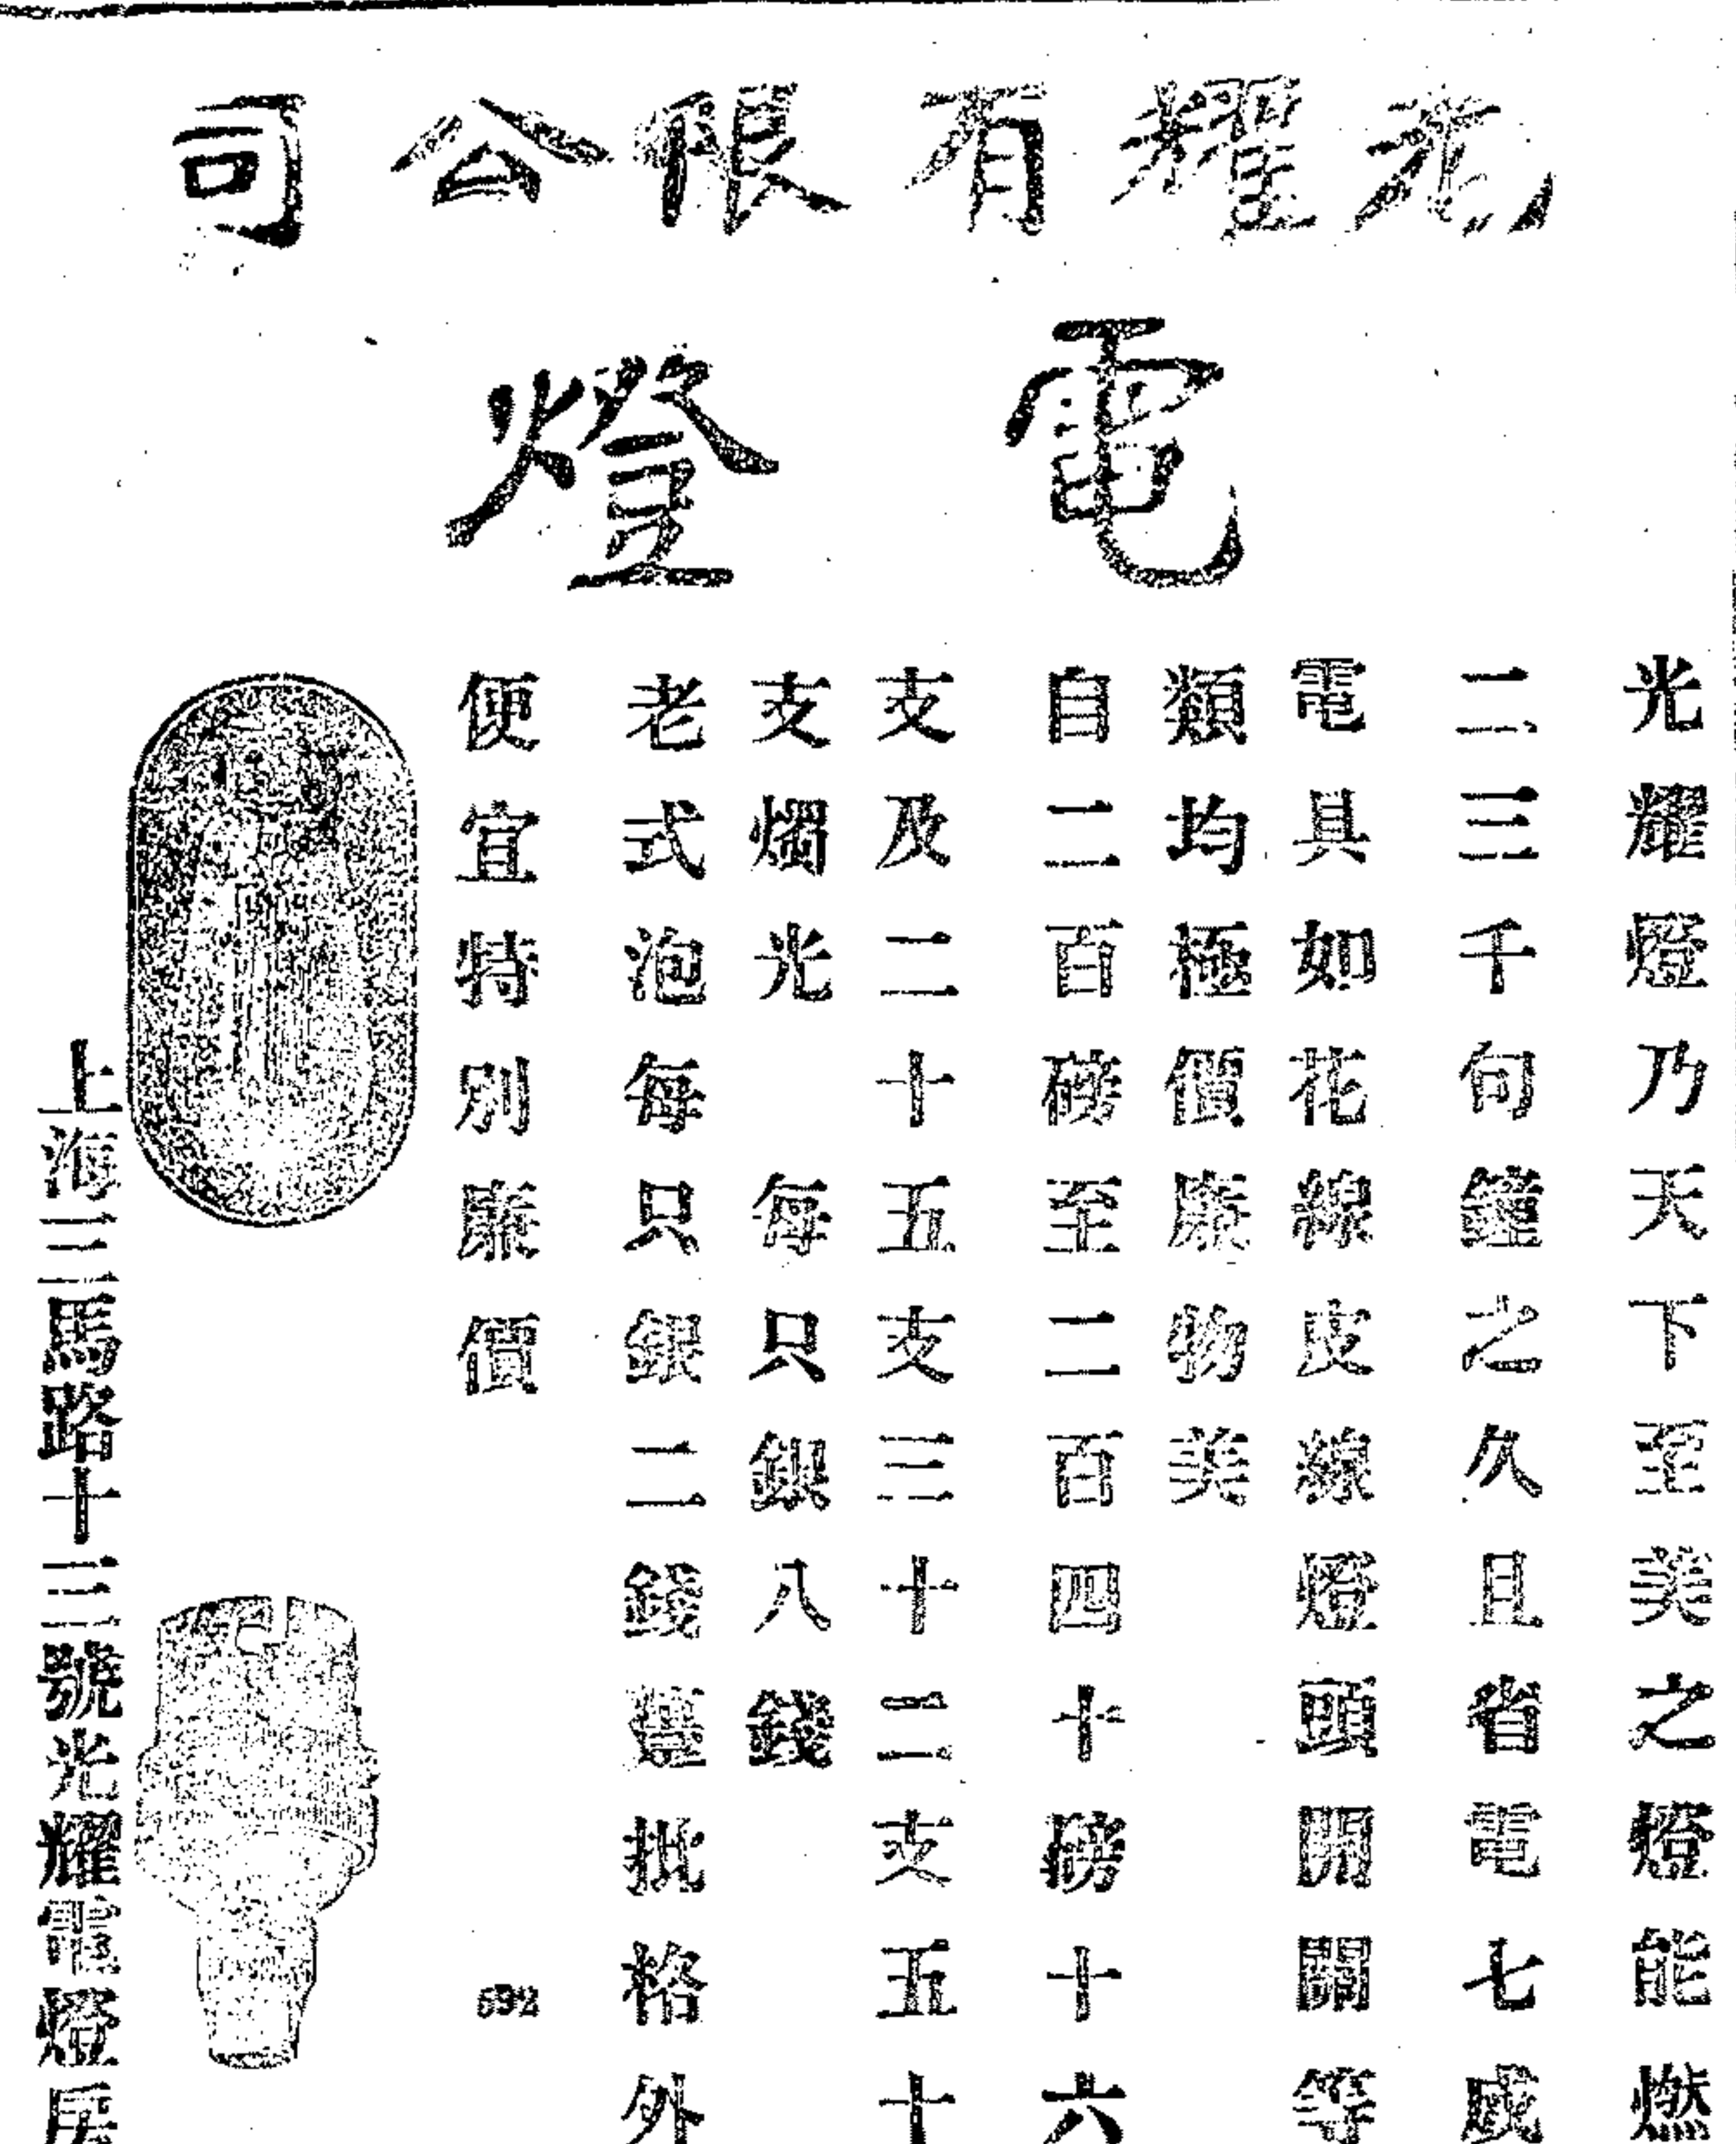 光耀有限公司
電燈
光耀燈乃天下至美之燈能燃
二三千句鐘之久且省電七成
電具如花線皮線燈頭開關等
類均極價廉物美
自二百磅至二百四十磅十六
支及二十五支三十二支五十
支燭光 每只銀八錢
老式泡每只銀二錢躉批格外
便宜特別廉價
692
上海三馬路十三號光耀電燈房